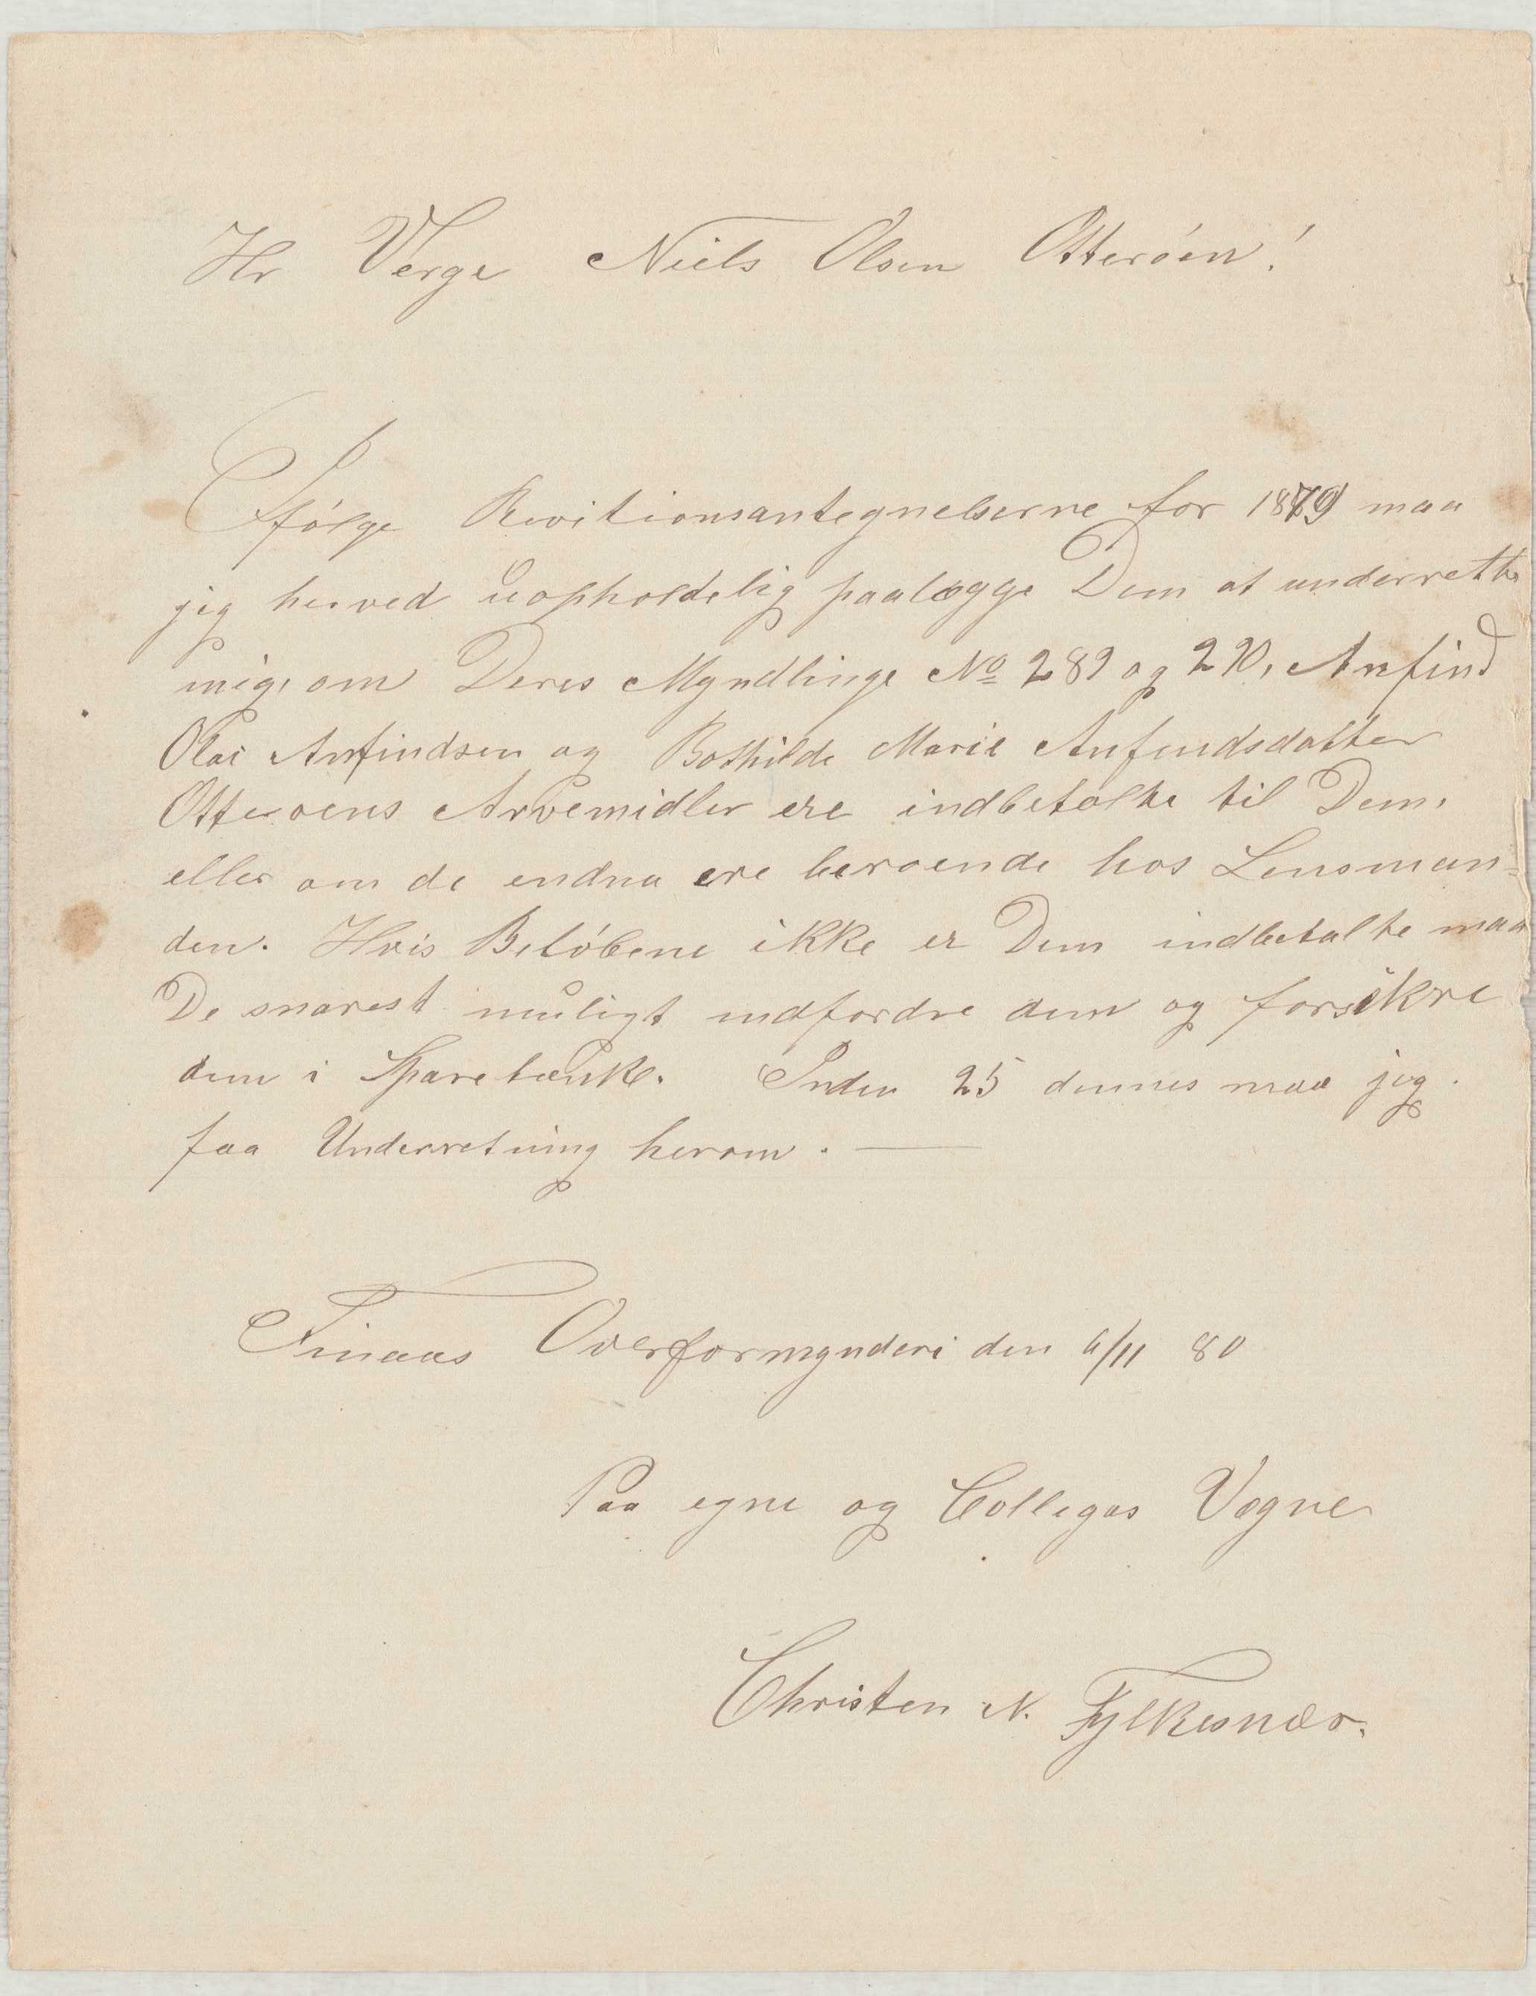 Hr Verge Niels Olsen Otterøen!
Ifølge Revitionsantegnelserne for 1879 maa
jeg herved uopholdelig paalægge Dem at underrette
mig, om Deres Myndlinge No 289 og 290, Anfind
Olai Anfindsen og Bothilde Marie Anfindsdatter
Otterøens Arvemidler ere indbetalte til Dem,
eller om de endnu ere beroende hos Lensman-
den. Hvis Beløbene ikke er Dem indbetalte maa
De snarest muligt indfordre dem og forsikre
dem i Sparebænk. Inden 25 dennes maa jeg
faa Underretning herom. —
Finaas Overformynderi den 6/11 80
Paa egne og Collegas Vegne
Christen N. Fylkesnæs.